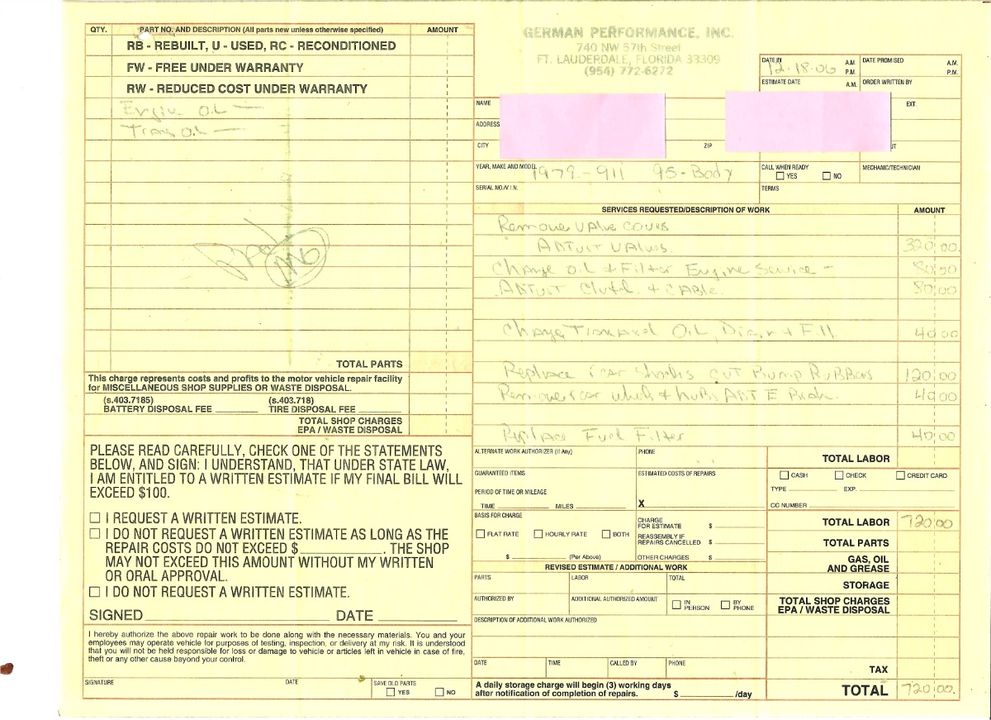 QTY. PART NO. AND DESCRIPTION (All parts new unless otherwise specified) AMOUNT
RB - REBUILT, U - USED, RC - RECONDITIONED
FW - FREE UNDER WARRANTY
RW - REDUCED COST UNDER WARRANTY
Oil
Trans Oil
TOTAL PARTS
This charge represents costs and profits to the motor vehicle repair facility
for MISCELLANEOUS SHOP SUPPLIES OR WASTE DISPOSAL.
(s.403.7185) (s.403.718)
BATTERY DISPOSAL FEE TIRE DISPOSAL FEE
TOTAL SHOP CHARGES
EPA / WASTE DISPOSAL
PLEASE READ CAREFULLY, CHECK ONE OF THE STATEMENTS
BELOW, AND SIGN: I UNDERSTAND, THAT UNDER STATE LAW,
I AM ENTITLED TO A WRITTEN ESTIMATE IF MY FINAL BILL WILL
EXCEED $100.
I REQUEST A WRITTEN ESTIMATE.
I DO NOT REQUEST A WRITTEN ESTIMATE AS LONG AS THE
REPAIR COSTS DO NOT EXCEED $ . THE SHOP
MAY NOT EXCEED THIS AMOUNT WITHOUT MY WRITTEN
OR ORAL APPROVAL.
I DO NOT REQUEST A WRITTEN ESTIMATE.
SIGNED DATE
I hereby authorize the above repair work to be done along with the necessary materials. You and your
employees may operate vehicle for purposes of testing, inspection, or delivery at my risk. It is understood
that you will not be held responsible for loss or damage to vehicle or articles left in vehicle in case of fire,
theft or any other cause bayond your control.
SIGNATURE DATE SAVE OLD PARTS
YES NO
GERMAN PERFORMANCE, INC.
740 NW 57th Street
FT. LAUDERDALE, FLORIDA 33309
(954) 772-6272
DATE IN 12-18-06 A.M. P.M. DATE PROMISED A.M. P.M.
ESTIMATE DATE A.M. ORDER WRITTEN BY
NAME EXT.
ADDRESS
CITY ZIP
YEAR, MAKE AND MODEL 1979-911 95-Body
CALL WHEN READY YES NO MECHANIC/TECHNICIAN
SERIAL NO./V.I.N. TERMS
SERVICES REQUESTED/DESCRIPTION OF WORK AMOUNT
Remove Valve
Values. 320 00
Change oil & Filter Engine Service - 80 00
Clutch & Cable. 80 00
Change Oil, & Fill 40 00
Replace 120 00
Remove 40 00
Replace Fuel Filter 40 00
ALTERNATE WORK AUTHORIZER (If Any) PHONE
TOTAL LABOR
GUARANTEED ITEMS ESTIMATED COSTS OF REPAIRS
CASH CHECK CREDIT CARD
PERIOD OF TIME OR MILEAGE
TYPE EXP.
TIME MILES X
CC NUMBER
BASIS FOR CHARGE
FLAT RATE HOURLY RATE BOTH
$ (Per Above)
CHARGE FOR ESTIMATE $
REASSEMBLY IF REPAIRS CANCELLED $
OTHER CHARGES $
TOTAL LABOR 720 00
TOTAL PARTS
GAS, OIL
AND GREASE
REVISED ESTIMATE / ADDITIONAL WORK
PARTS LABOR TOTAL
STORAGE
AUTHORIZED BY ADDITIONAL AUTHORIZED AMOUNT IN PERSON BY PHONE
TOTAL SHOP CHARGES
EPA / WASTE DISPOSAL
DESCRIPTION OF ADDITIONAL WORK AUTHORIZED
DATE TIME CALLED BY PHONE
TAX
A daily storage charge will begin (3) working days
after notification of completion of repairs. $ /day
TOTAL 720 00.